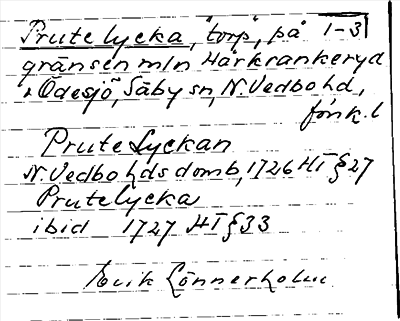 Prutelycka, "torp", på 1-3
gränsen mln Hårkrankeryd
o Ödesjö, Säby sn, N.Vedbo hd,
förk. l
PruteLyckan
N.Vedbo hds domb, 1726 HT § 27
Prutelycka
ibid 1727 HT § 33
Erik Lönnerholm